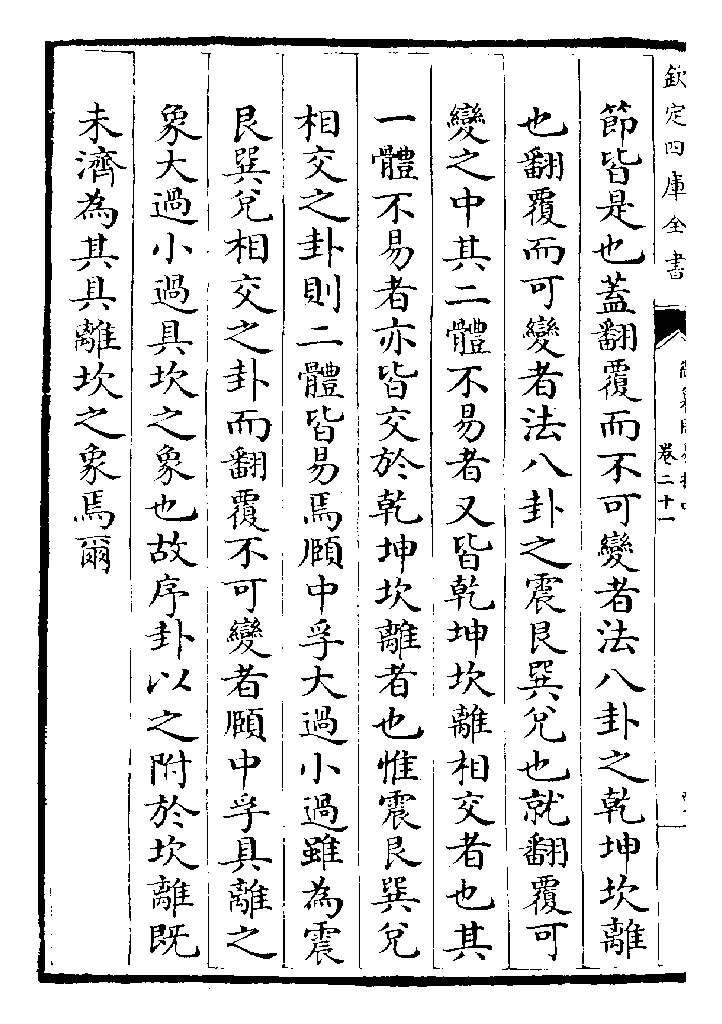 欽定四庫全書
卷二十一
節皆是也蓋翻覆而不可變者法八卦之乾坤坎離
也翻覆而可變者法八卦之震艮巽兌也就翻覆可
變之中其二體不易者又皆乾坤坎離相交者也其
一體不易者亦皆交於乾坤坎離者也惟震艮巽兌
相交之卦則二體皆易焉頤中孚大過小過雖為震
艮巽兌相交之卦而翻覆不可變者頤中孚具離之
象大過小過具坎之象也故序卦以之附於坎離既
未濟為其具離坎之象焉爾